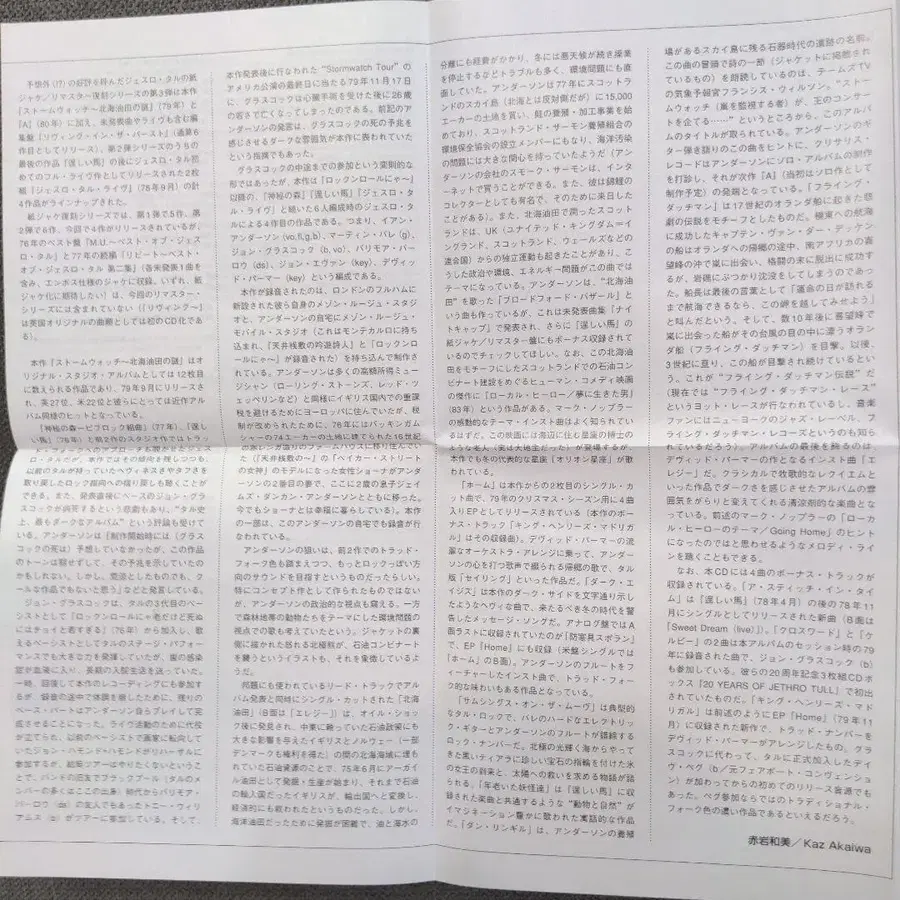 予想外(!?)の好評を呼んだジェスロ・タルの紙
ジャケ/リマスター復刻シリーズの第3弾は本作
『ストームウォッチ〜北海油田の謎』(79年)と
『A』(80年)に加え、未発表曲やライヴも含む編
集盤『リヴィング・イン・ザ・パースト』(通算6
作目としてリリース)、第2弾シリーズのうちの
最後の作品『逞しい馬』の後にジェスロ・タル初
めてのフル・ライヴ作としてリリースされた2枚
組『ジェスロ・タル・ライヴ』(78年9月)の計
4作品がラインナップされた。
紙ジャケ復刻シリーズでは、第1弾で5作、第
2弾で6作、今回で4作がリリースされているが、
76年のベスト盤『M.U.〜ベスト・オブ・ジェス
ロ・タル』と77年の続編『リピート〜ベスト・
オブ・ジェスロ・タル 第二集』(各未発表1曲を
含み、エンボス仕様のジャケに収録、いずれ、紙
ジャケ化に期待したい)は、今回のリマスター・
シリーズには含まれていない(『リヴィング〜』
は英国オリジナルの曲順としては初のCD化であ
る)。
本作『ストームウォッチ〜北海油田の謎』はオ
リジナル・スタジオ・アルバムとしては12枚目
に数えられる作品であり、79年9月にリリース
され、英27位、米22位と彼らにとっては近作アル
バム同様のヒットとなっている。
『神秘の森〜ピブロック組曲』(77年)、『逞し
い馬』(78年)と前2作のスタジオ作ではトラッ
以前のタルが持っていたヘヴィネスさやタフさを
取り戻したロック指向への借り戻しも聴くことが
できる。また、発表直後にベースのジョン・グラ
スコックが病死するという悲劇もあり、"タル史
上、最もダークなアルバム"という評論も受けて
いる。アンダーソンは「制作開始時には(グラス
コックの死は)予想していなかったが、この作品
のトーンは期せずして、その予兆を示していたの
かもしれない。しかし、意図としたものでも、ク
ールな作品でもないと思う」などと発言している。
ジョン・グラスコックは、タルの3代目のベー
シストとして『ロックンロールにゃ老だけど死ぬ
にはチョイと若すぎる』(76年)から加入し、歌
えるベーシストとしてタルのステージ・パフォー
マンスでも大きな力を発揮していたが、歯の感染
症が血液に入り、長期の入院生活を送っていた。
一時、回復して本作のレコーディングにも参加す
るが、録音の途中で体調を崩したために、残りの
ベース・パートはアンダーソン自らプレイして完
成させることになった。ライヴ活動のために代役
が立てられ、以前のベーシストで画家に転向して
いたジョン・ハモンド=ハモンドがリハーサルに
参加するが、結局ツアーはやりたくないというこ
とで、バンドの旧友でブラックプール(タルのメ
ンバーの多くはここの出身)時代からバリモア・
バーロウ(ds)の友人でもあったトニー・ウィリ
アムス(b)がツアーに参加している。そして、
本作発表後に行なわれた"Stormwatch Tour"の
アメリカ公演の最終日に当たる79年11月17日
に、グラスコックは心臓手術を受けた後に26歳
の若さで亡くなってしまったのである。前記のア
ンダーソンの発言は、グラスコックの死の予兆を
感じさせるダークな雰囲気が本作に表われていた
という指摘でもあった。
グラスコックの中途までの参加という変則的な
形ではあったが、本作は『ロックンロールにゃ〜』
以降の、『神秘の森』『逞しい馬』『ジェスロ・タ
ル・ライヴ』と続いた6人編成時のジェスロ・タ
ルによる4作目の作品である。つまり、イアン・
アンダーソン(vo,fl,g,b)、マーティン・バレ(g)、
ジョン・グラスコック(b,vo)、バリモア・バー
ロウ(ds)、ジョン・エヴァン(key)、デヴィッ
ド・パーマー(key)という編成である。
本作が録音されたのは、ロンドンのフルハムに
新設された彼ら自身のメゾン・ルージュ・スタジ
オと、アンダーソンの自宅にメゾン・ルージュ・
モバイル・スタジオ(これはモンテカルロに持ち
込まれ、『天井桟敷の吟遊詩人』と『ロックンロ
ールにゃ〜』が録音された)を持ち込んで制作さ
れている。アンダーソンは多くの高額所得ミュー
ジシャン(ローリング・ストーンズ、レッド・ツ
ェッペリンなど)と同様にイギリス国内での重課
税を避けるためにヨーロッパに住んでいたが、税
制が改められたために、76年にはバッキンガム
シャーの74エーカーの土地に建てられた16世紀
た(『天井桟敷の〜』の「ベイカー・ストリート
の女神」のモデルになった女性ショーナがアンダ
ーソンの2番目の妻で、ここに2歳の息子ジェイ
ムズ・ダンカン・アンダーソンとともに移った。
今でもショーナとは幸福に暮らしている)。本作
の一部は、このアンダーソンの自宅でも録音が行
なわれている。
アンダーソンの狙いは、前2作でのトラッド・
フォーク色も踏まえつつ、もっとロックっぽい方
向のサウンドを目指すというものだったらしい。
特にコンセプト作として作られたものではない
が、アンダーソンの政治的な視点も窺える。一方
で森林地帯の動物たちをテーマにした環境問題の
視点での歌も考えていたという。ジャケットの裏
側に描かれた怒れる北極熊が、石油コンビナート
を襲うというイラストも、それを象徴しているよ
うだ。
邦題にも使われているリード・トラックでアル
バム発表と同時にシングル・カットされた「北海
油田」(B面は「エレジー」)は、オイル・ショッ
ク後に発見され、中東に頼っていた石油政策にも
大きな影響を与えたイギリスとノルウェー(一部
デンマークも権利を得た)の間の北海海域に埋も
れていた石油資源のことで、75年6月にアーガイ
ル油田として発掘・生産が始まり、それまで石油
の輸入国だったイギリスが、輸出国へと変換し、
経済的にも救われたというものだった。しかし、
海洋油田だったために発掘が困難で、油と海水の
分離にも経費がかかり、冬には悪天候が続き操業
を停止するなどトラブルも多く、環境問題にも直
面していた。アンダーソンは77年にスコットラン
ドのスカイ島(北海とは反対側だが)に15,000
エーカーの土地を買い、鮭の養殖・加工事業を始
めており、スコットランド・サーモン養殖組合の
環境保全協会の設立メンバーにもなり、海洋汚染
の問題には大きな関心を持っていたようだ(アン
ダーソンの会社のスモーク・サーモンは、インタ
ーネットで買うことができる。また、彼は錦鯉の
コレクターとしても有名で、そのために来日した
ことがある)。また、北海油田で潤ったスコット
ランドは、UK(ユナイテッド・キングダム=イ
ングランド、スコットランド、ウェールズなどの
連合国)からの独立運動も起きたことがあり、こ
うした政治や環境、エネルギー問題がこの曲では
テーマになっている。アンダーソンは、"北海油
田"を歌った「ブロードフォード・バザール」と
いう曲も作っているが、これは未発表曲集『ナイ
トキャップ』で発表され、さらに『逞しい馬』の
紙ジャケ/リマスター盤にもボーナス収録されて
いるのでチェックしてほしい。なお、この北海油
田をモチーフにしたスコットランドでの石油コン
ビナート建設をめぐるヒューマン・コメディ映画
の傑作に『ローカル・ヒーロー/夢に生きた男』
(83年)という作品がある。マーク・ノップラー
の感動的なテーマ・インスト曲はよく知られてい
るはずだ。この映画には海辺に住む星座の博士の
ような老人(実は大地主だった)が登場するが、
本作でも冬の代表的な星座「オリオン星座」が歌
われている。
「ホーム」は本作からの2枚目のシングル・カ
ット曲で、79年のクリスマス・シーズン用に4曲
入りEPとしてリリースされている(本作のボー
ナス・トラック「キング・ヘンリーズ・マドリガ
ル」はその収録曲)。デヴィッド・パーマーの流
麗なオーケストラ・アレンジに乗って、アンダー
ソンの心を打つ歌声で綴られる帰郷の歌で、タル
版「セイリング」といった作品だ。「ダーク・エ
イジス」は本作のダーク・サイドを文字通り示し
たようなヘヴィな曲で、来たるべき冬の時代を警
告したメッセージ・ソングだ。アナログ盤ではA
面ラストに収録されていたのが「防寒具スポラン」
で、EP「Home」にも収録(米盤シングルでは
「ホーム」のB面)。アンダーソンのフルートをフ
ィーチャーしたインスト曲で、トラッド・フォー
ク的な味わいもある作品となっている。
「サムシングス・オン・ザ・ムーヴ」は典型的
なタル・ロックで、バレのハードなエレクトリッ
ク・ギターとアンダーソンのフルートが躍動する
ロック・ナンバーだ。北極の光輝く海からやって
きた黒いティアラに珍しい宝石の指輪を付けた氷
の女王の到来と、太陽への救いを求める物語が語
られる。「年老いた妖怪達」は『逞しい馬』に収
録された楽曲と共通するような"動物と自然"が
イマジネーション豊かに歌われた寓話的な作品
だ。「ダン・リンギル」は、アンダーソンの養殖
場があるスカイ島に残る石器時代の遺跡の名前。
この曲の冒頭で詩の一節(ジャケットに掲載され
ているもの)を朗読しているのは、テームズTV
の気象予報官フランシス・ウィルソン。"ストー
ムウォッチ(嵐を監視する者)が、王のコンサー
トを企てる……"というところから、このアルバ
ムのタイトルが取られている。アンダーソンのギ
ター弾き語りのこの曲をヒントに、クリサリス・
レコードはアンダーソンにソロ・アルバムの制作
を打診し、それが次作『A』(当初はソロ作として
制作予定)の発端となっている。「フライング・
ダッチマン」は17世紀のオランダ船に起きた悲
劇の伝説をモチーフとしたものだ。極東への航海
に成功したキャプテン・ヴァン・ダー・デッケン
の船はオランダへの帰郷の途中、南アフリカの喜
望峰の沖で嵐に出会い、格闘の末に脱出に成功す
るが、岩礁にぶつかり沈没をしてしまうのであっ
た。船長は最後の言葉として「運命の日が訪れる
まで航海できるなら、この岬を越してみせよう」
と叫んだという。そして、数10年後に喜望峰で
嵐に出会った船がその台風の目の中に漂うオラン
ダ船(フライング・ダッチマン)を目撃。以後、
3世紀に亘り、この船が目撃され続けているとい
う。これが"フライング・ダッチマン伝説"だ
(現在では"フライング・ダッチマン・レース"
というヨット・レースが行なわれているし、音楽
ファンにはニューヨークのジャズ・レーベル、フ
ライング・ダッチマン・レコーズというのも知ら
れているだろう)。アルバムの最後を飾るのは、
デヴィッド・パーマーの作となるインスト曲「エ
レジー」だ。クラシカルで牧歌的なレクイエムと
いった作品でダークさを感じさせたアルバムの雰
囲気をがらりと変えてくれる清涼剤的な楽曲とな
っている。前述のマーク・ノップラーの「ローカ
ル・ヒーローのテーマ/Going Home」のヒント
になったのではと思わせるようなメロディ・ライ
ンを聴くこともできる。
なお、本CDには4曲のボーナス・トラックが
収録されている。「ア・スティッチ・イン・タイ
ム」は『逞しい馬』(78年4月)の後の78年11
月にシングルとしてリリースされた新曲(B面は
「Sweet Dream (live)」)。「クロスワード」と「ケ
ルピー」の2曲は本アルバムのセッション時の79
年に録音された曲で、ジョン・グラスコック(b)
も参加している。彼らの20周年記念3枚組CDボ
ックス『20 YEARS OF JETHRO TULL』で初出
されていたものだ。「キング・ヘンリーズ・マド
リガル」は前述のようにEP「Home」(79年11
月)に収録された新作で、トラッド・ナンバーを
デヴィッド・パーマーがアレンジしたもの。グラ
スコックに代わって、タルに正式加入したデイ
ヴ・ペグ(b/元フェアポート・コンヴェンショ
ン)が加わってからの初めてのリリース音源でも
あった。ペグ参加ならではのトラディショナル・
フォーク色の濃い作品であるといえるだろう。
赤岩和美/Kaz Akaiwa